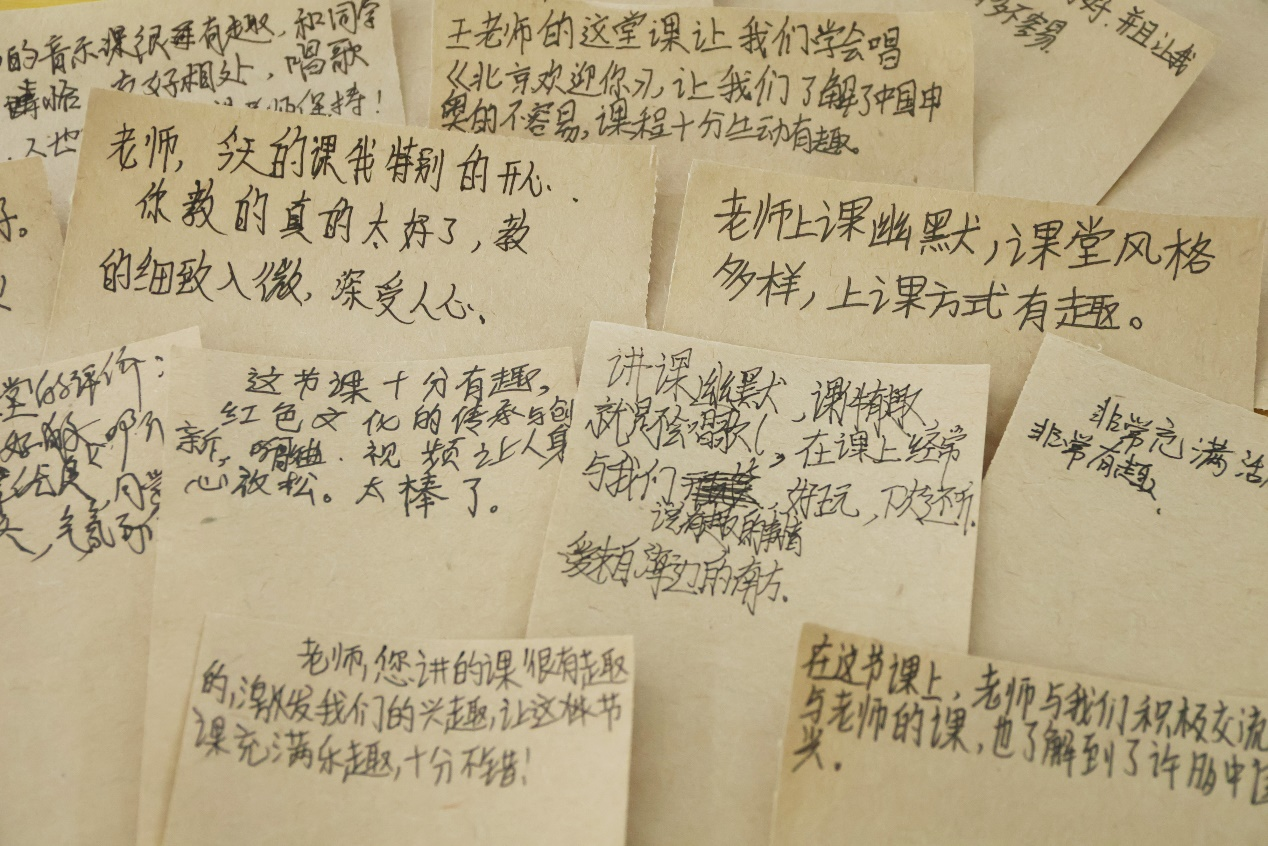 的音乐课很有趣，和同学
友好相处，唱歌
老师保持！
王老师的这堂课让我们学会唱
《北京欢迎你》，让我们了解了中国申
奥的不容易，课程十分生动有趣。
多不容易
好，并且让我
老师，今天的课我特别的开心.
你教的真的太好了，教
的细致入微，深受人心.
老师上课幽默，课堂风格
多样，上课方式有趣。
堂的评价：
这节课十分有趣，
红色文化的传承与创
新，歌曲.视频让人身
心放松。太棒了。
讲课幽默，课特有趣
就是会唱歌！，在课上经常
与我们
好玩，下次还听.
说有趣的事情
爱来自海边的南方.
非常充满活
非常有趣.
老师，您讲的课很有趣
的，激发我们的兴趣，让这节
课充满乐趣，十分不错！
在这节课上，老师与我们积极交流
与老师的课，也了解到了许多中国
兴.